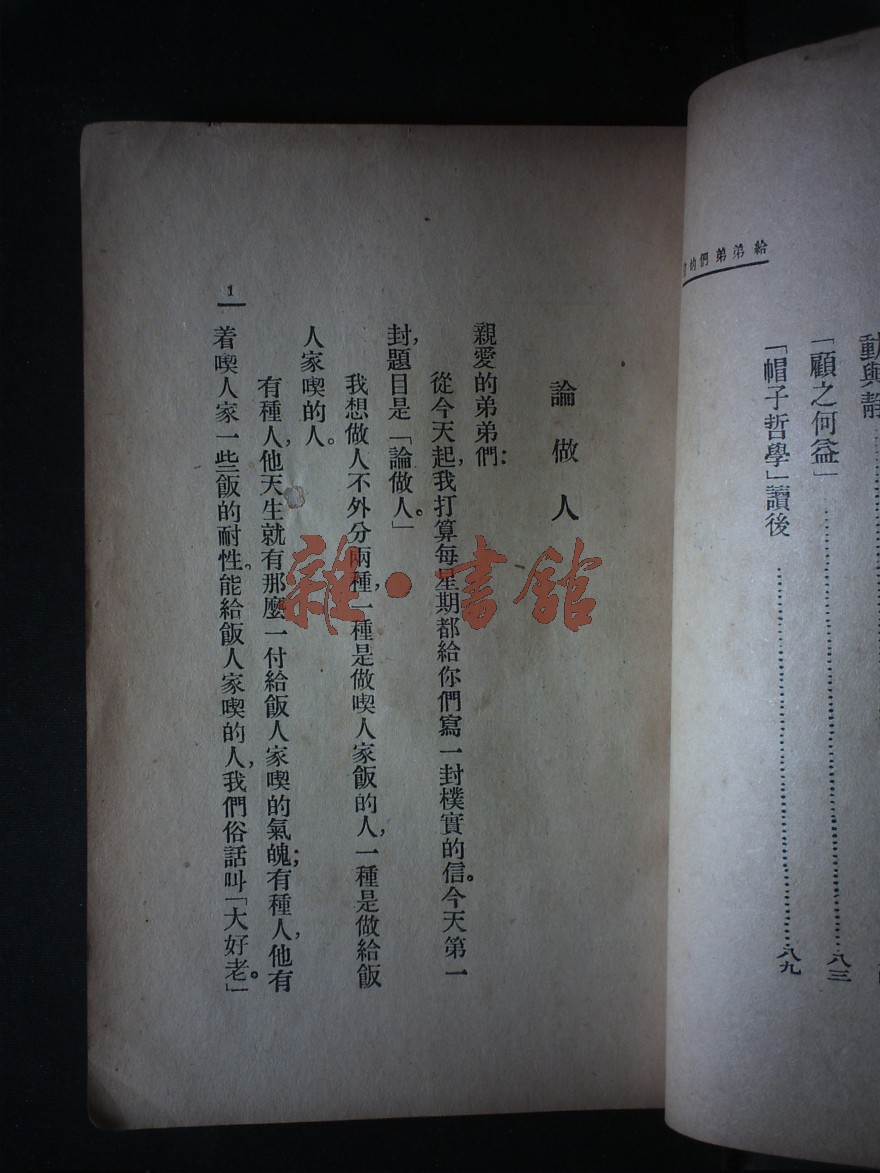 給弟弟們的
動與靜
「顧之何益」 八三
「帽子哲學」讀後 八九
論做人
親愛的弟弟們：
從今天起，我打算每星期都給你們寫一封樸實的信。今天第一
封，題目是「論做人。」
我想做人不外分兩種，一種是做喫人家飯的人，一種是做給飯
人家喫的人。
有種人，他天生就有那麼一付給飯人家喫的氣魄；有種人，他有
着喫人家一些飯的耐性。能給飯人家喫的人，我們俗話叫「大好老。」
1
雜·書館